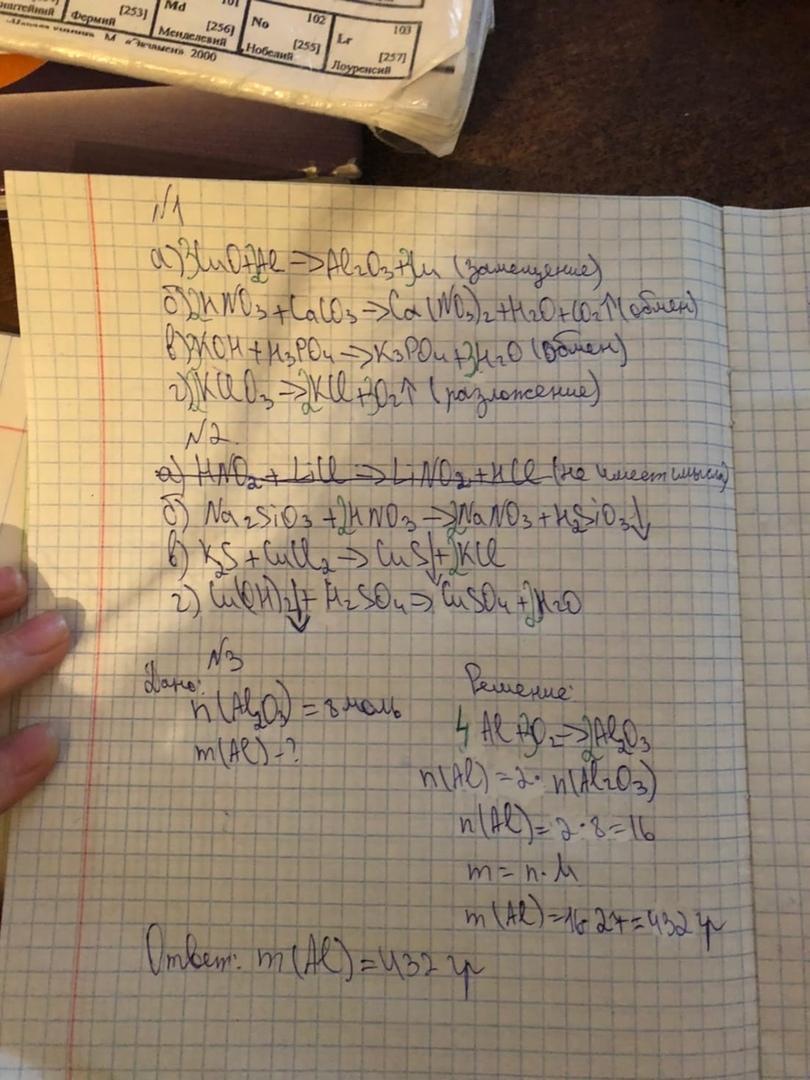 Фермий [253]
Md 101
Менделевий [256]
No 102
Нобелий [255]
Lr 103
Лоуренсий [257]
М. «Экзамен» 2000
N1
а) 3CuO+2Al => Al2O3+3Cu (замещение)
б) 2HNO3 + CaCO3 → Ca(NO3)2 + H2O + CO2↑ (обмен)
в) 3KOH + H3PO4 → K3PO4 + 3H2O (обмен)
г) 2KClO3 → 2KCl + 3O2↑ (разложение)
N2.
а) HNO2 + LiCl → LiNO2 + HCl (не имеет смысла)
б) Na2SiO3 + 2HNO3 → 2NaNO3 + H2SiO3↓
в) K2S + CuCl2 → CuS↓ + 2KCl
г) Cu(OH)2↓ + H2SO4 → CuSO4 + 2H2O
N3
Дано:
n(Al2O3) = 8 моль
m(Al) - ?
Решение:
4Al + 3O2 → 2Al2O3
n(Al) = 2 · n(Al2O3)
n(Al) = 2 · 8 = 16
m = n · M
m(Al) = 16 · 27 = 432 гр
Ответ: m(Al) = 432 гр